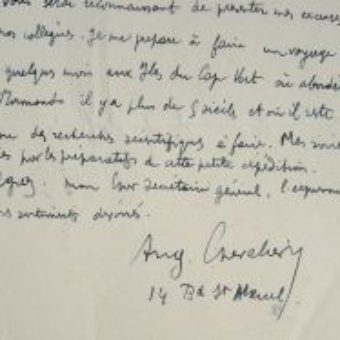 vous serai reconnaissant de présenter mes excuses
nos collègues. Je me prépare à faire un voyage
quelques mois aux Iles du Cap Vert où abordè
Normands il y a plus de 5 siècles et où il reste
des recherches scientifiques à faire. Mes
par les préparatifs de cette petite expédition.
mon cher Secrétaire général, l'expression
sentiments dévoués.
Aug. Chevalier
14 Bd St Marcel